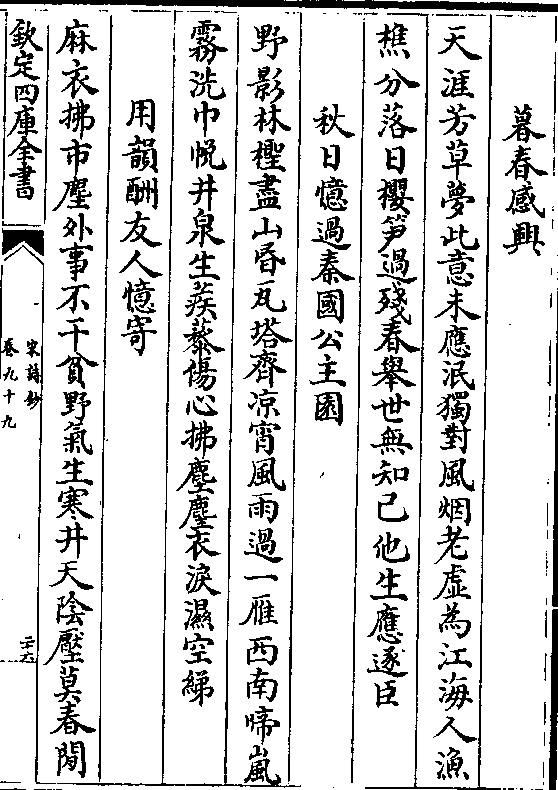 暮春感興
天涯芳草夢此意未應泯獨對風烟老虛為江海人漁
樵分落日櫻笋過殘春舉世無知己他生應逐臣
秋日憶過秦國公主園
野影林檉盡山昏瓦塔齊凉宵風雨過一雁西南啼嵐
霧洗巾帨井泉生蒺藜傷心拂塵麈衣淚濕空綈
用韻酬友人憶寄
麻衣拂市塵外事不干貧野氣生寒井天陰壓莫春閒
欽定四庫全書
宋詩鈔
卷九十九
二十六